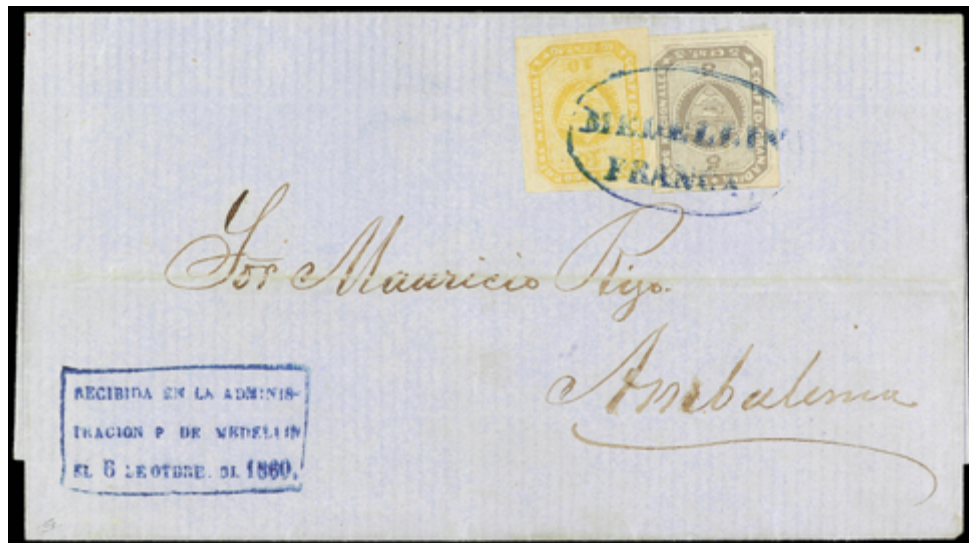 5 CENT. S
10
MEDELLIN
FRANCA
Sor Mauricio Rizo.
Ambalema
RECIBIDA EN LA ADMINIS-
TRACION P DE MEDELLIN
EL 6 DE OTUBRE. DE 1860.